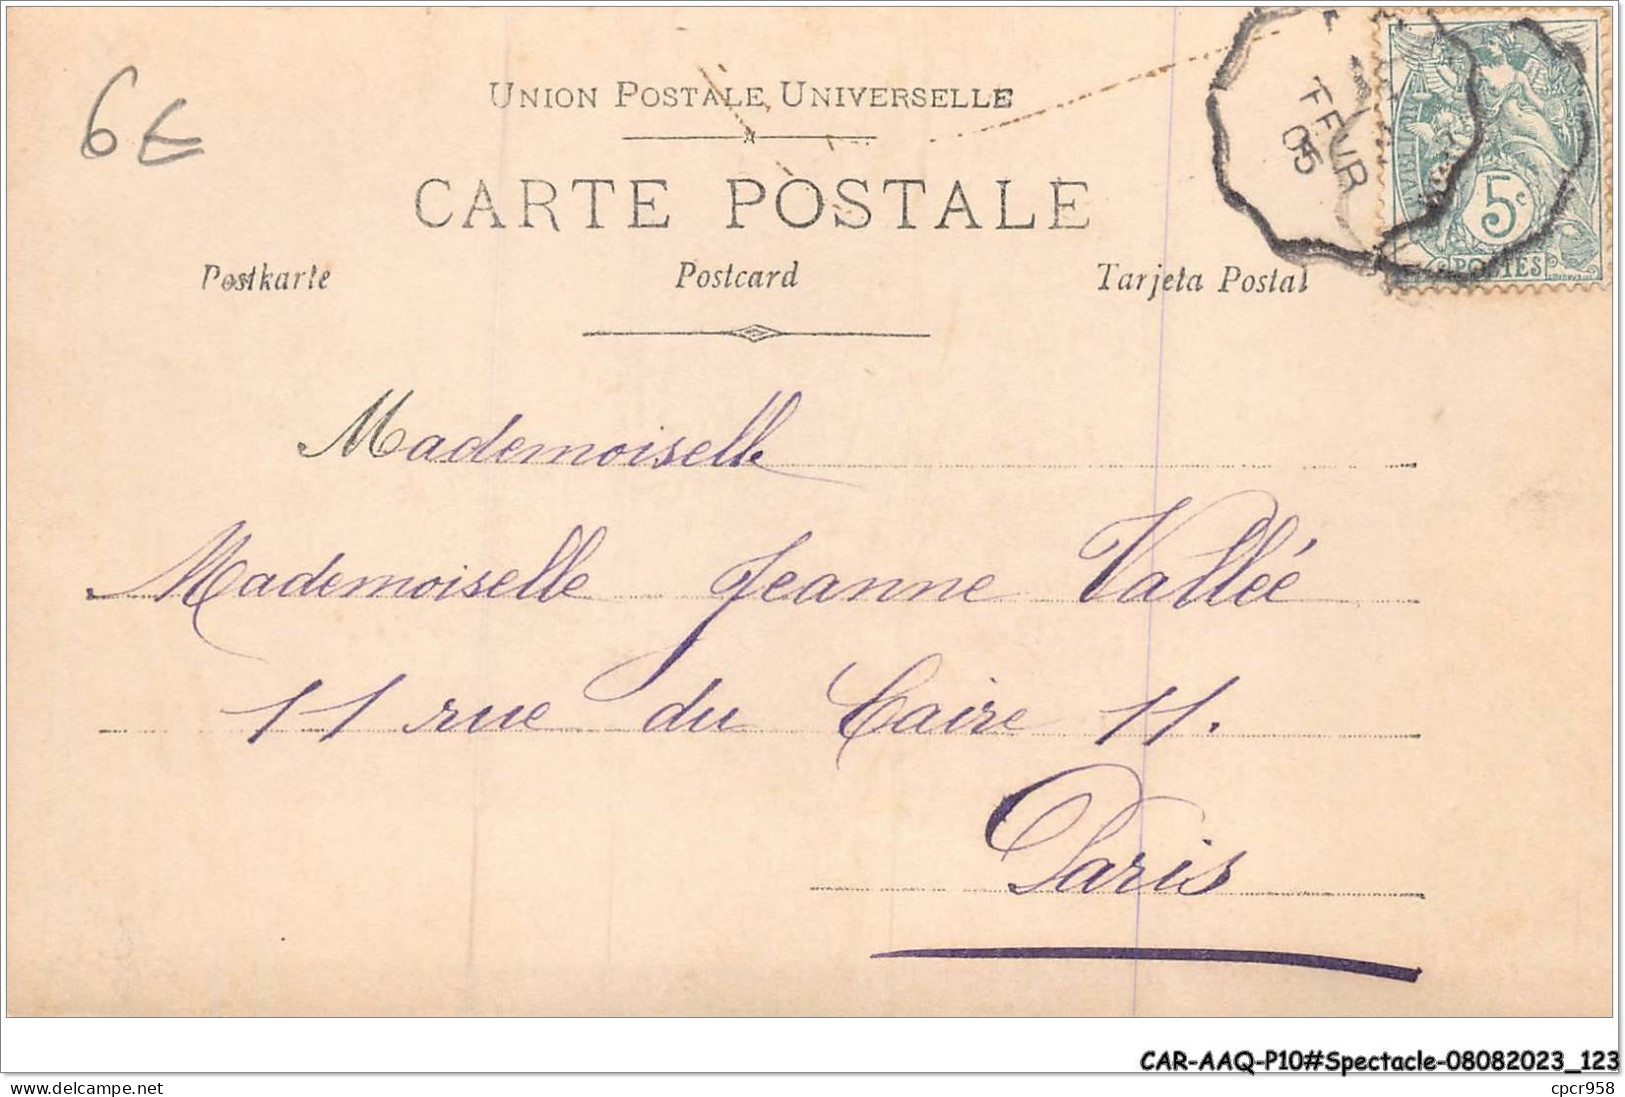 6€
UNION POSTALE UNIVERSELLE
CARTE POSTALE
Postkarte Postcard Tarjeta Postal
FEVR
05
5c
POSTES
Mademoiselle
Mademoiselle Jeanne Vallée
11 rue du Caire 11.
Paris
CAR-AAQ-P10#Spectacle-08082023_123
delcampe.net
cpcr958